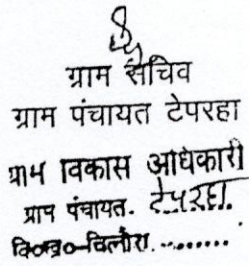 ग्राम सचिव
ग्राम पंचायत टेपरहा
ग्राम विकास अधिकारी
ग्राप पंचायत. टेपरहा.
वि०ख०-चिलौरा.........